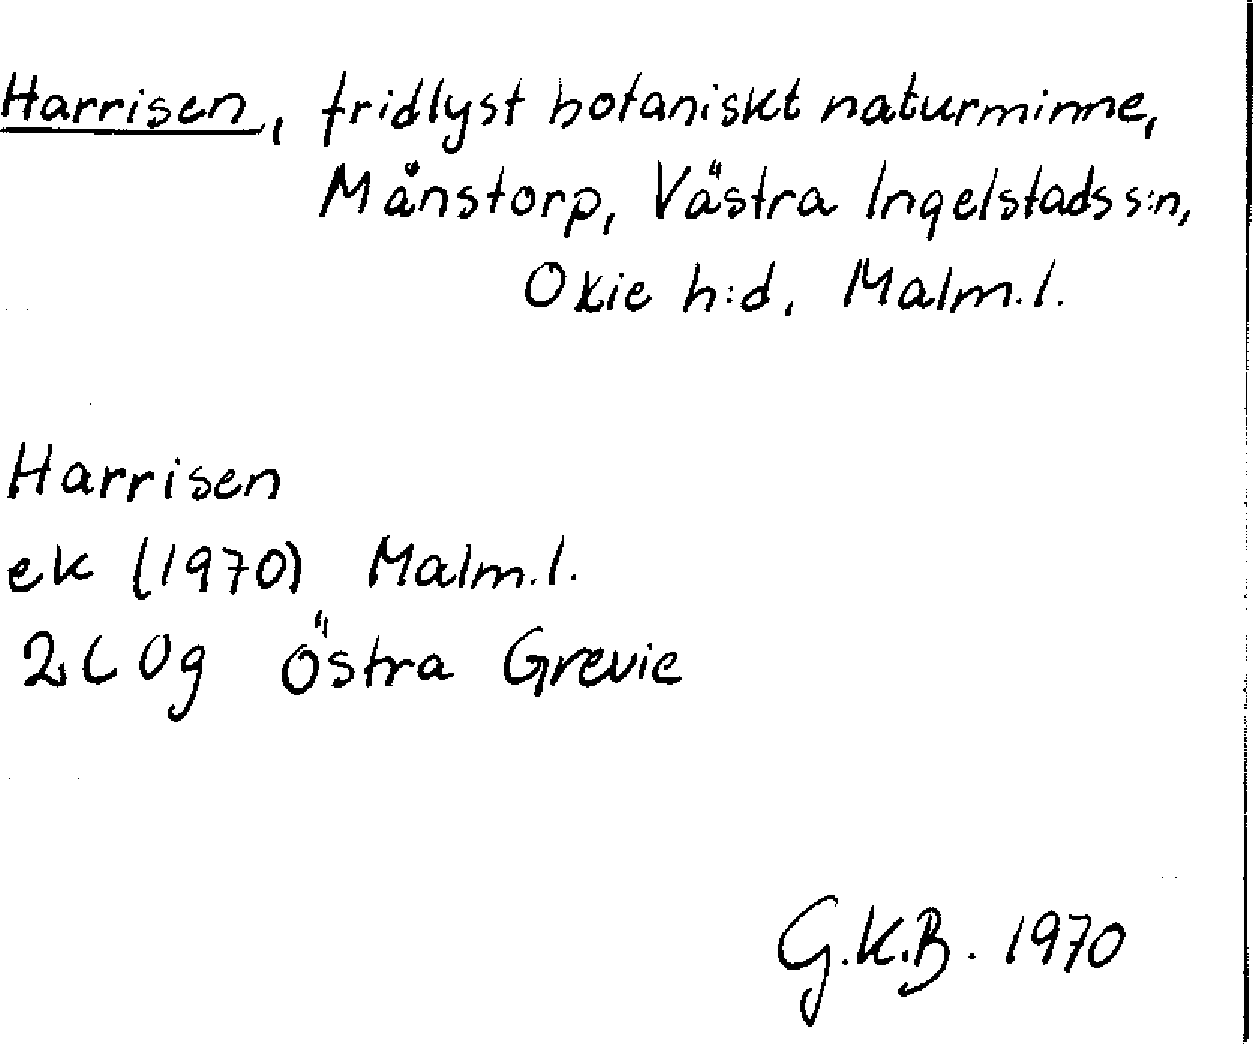 Harrisen, fridlyst botaniskt naturminne,
Månstorp, Västra Ingelstads s:n,
Oxie h:d, Malm.l.
Harrisen
ek (1970) Malm.l.
2C 0g Östra Grevie
G.K.B. 1970